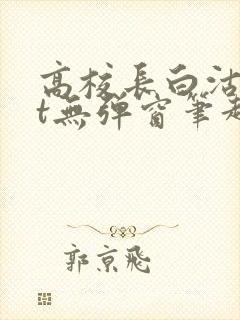 高校長白沽
t無彈窗筆趣
郭京飛